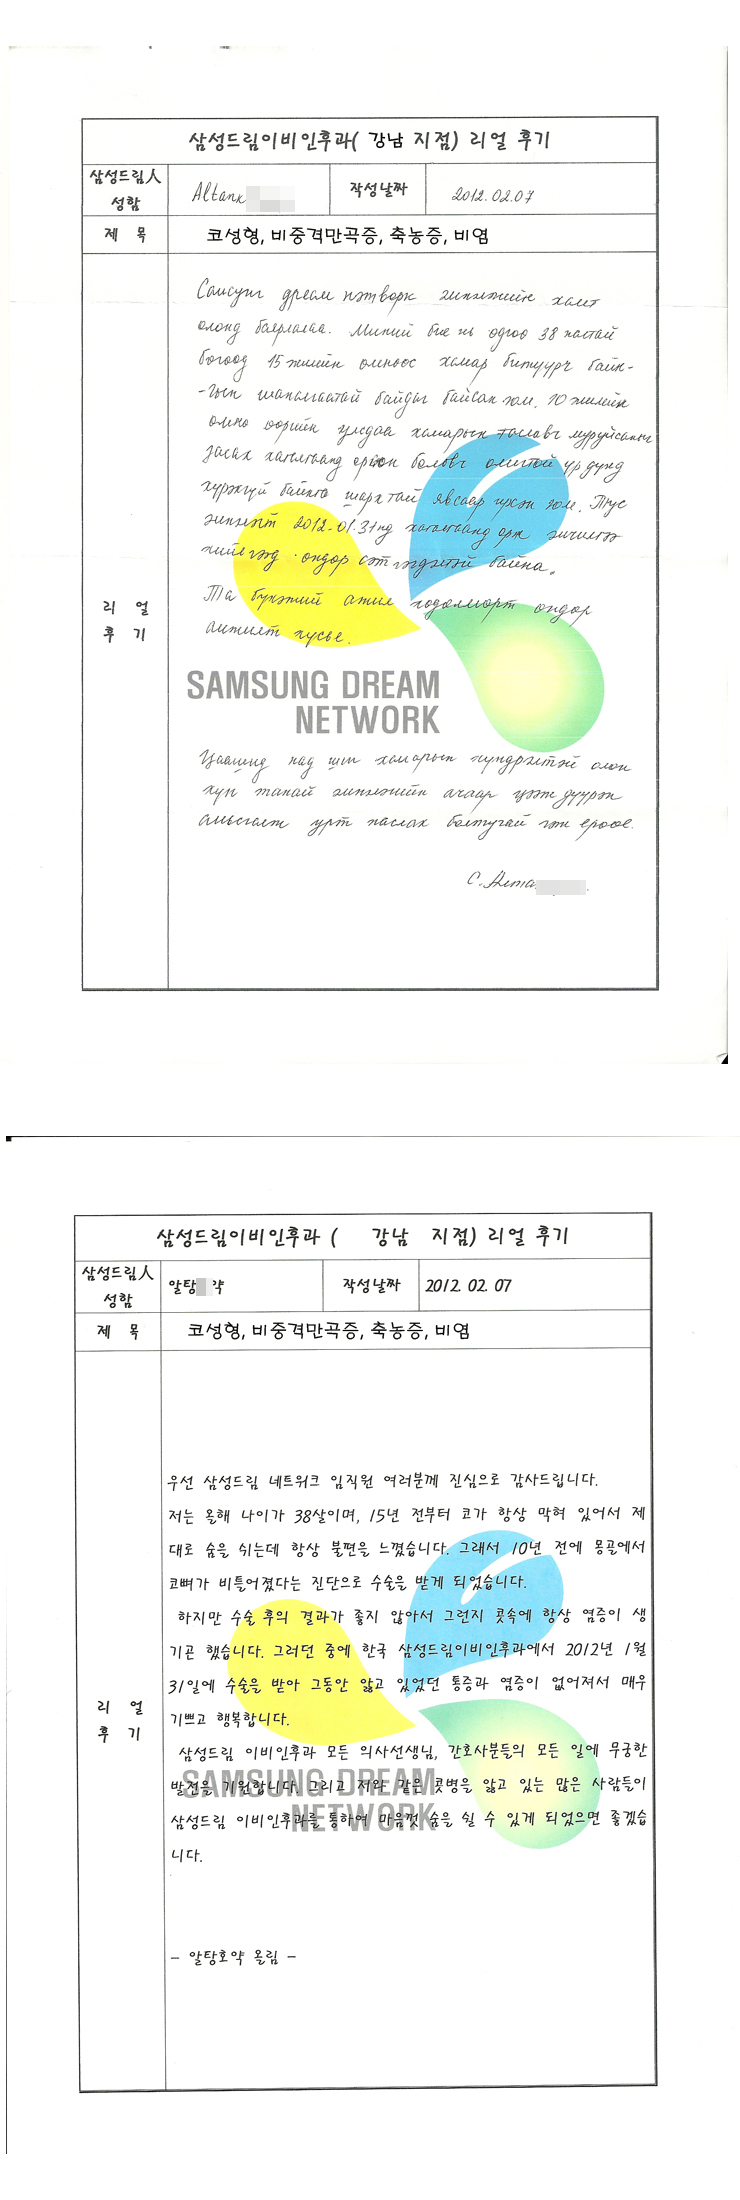 삼성드림이비인후과( 강남 지점) 리얼 후기
삼성드림人 성함
Altan
작성날짜
2012.02.07
제 목
코성형, 비중격만곡증, 축농증, 비염
리 얼
후 기
Самсунг дреам нэтворк эмнэлгийн хамт
олонд баярлалаа. Миний бие нь одоо 38 настай
бөгөөд 15 жилийн өмнөөс хамар битүүрч байн-
-гын шаналгаатай байдаг байсан юм. 10 жилийн
өмнө өөрийн улсдаа хамарын таславч муруйсаныг
засах хагалгаанд орсон боловч олигтой үр дүнд
хүрэхгүй байнга шархтай явсаар ирсэн юм. Тус
эмнэлэгт 2012.01.31нд хагалгаанд орж эмчилгээ
хийлгээд өндөр сэтгэгдэлтэй байна.
Та бүхэний ажил хөдөлмөрт өндөр
амжилт хүсье.
SAMSUNG DREAM
NETWORK
Цаашид над шиг хамарын хүндрэлтэй олон
хүн танай эмнэлэгийн ачаар цээж дүүрэн
амьсгалж урт наслах болтугай гэж ерөөе.
С. Алта
삼성드림이비인후과 ( 강남 지점) 리얼 후기
삼성드림人 성함
알탕 약
작성날짜
2012. 02. 07
제 목
코성형, 비중격만곡증, 축농증, 비염
리 얼
후 기
우선 삼성드림 네트워크 임직원 여러분께 진심으로 감사드립니다.
저는 올해 나이가 38살이며, 15년 전부터 코가 항상 막혀 있어서 제
대로 숨을 쉬는데 항상 불편을 느꼈습니다. 그래서 10년 전에 몽골에서
코뼈가 비틀어졌다는 진단으로 수술을 받게 되었습니다.
하지만 수술 후의 결과가 좋지 않아서 그런지 콧속에 항상 염증이 생
기곤 했습니다. 그러던 중에 한국 삼성드림이비인후과에서 2012년 1월
31일에 수술을 받아 그동안 앓고 있었던 통증과 염증이 없어져서 매우
기쁘고 행복합니다.
삼성드림 이비인후과 모든 의사선생님, 간호사분들의 모든 일에 무궁한
발전을 기원합니다. 그리고 저와 같은 콧병을 앓고 있는 많은 사람들이
삼성드림 이비인후과를 통하여 마음껏 숨을 쉴 수 있게 되었으면 좋겠습
니다.
SAMSUNG DREAM
NETWORK
- 알탕호약 올림 -